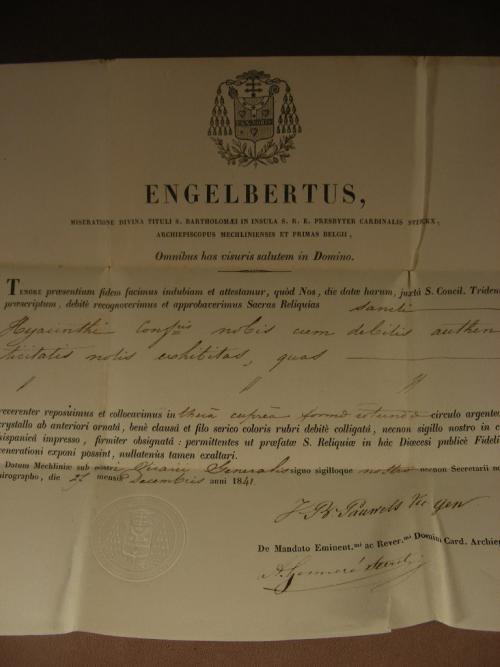 PAX VOBIS
ENGELBERTUS,
MISERATIONE DIVINA TITULI S. BARTHOLOMÆI IN INSULA S. R. E. PRESBYTER CARDINALIS STERKX,
ARCHIEPISCOPUS MECHLINIENSIS ET PRIMAS BELGII,
Omnibus has visuris salutem in Domino.
TENORE præsentium fidem facimus indubiam et attestamur, quòd Nos, die datæ harum, juxtà S. Concil. Triden
præscriptum, debitè recognoverimus et approbaverimus Sacras Reliquias sancti
Hyacinthi Confris nobis cum debitis authen
ticitatis notis exhibitas, quas
reverenter reposuimus et collocavimus in thecâ cupreâ formæ rotundæ circulo argente
crystallo ab anteriori ornatâ, benè clausâ et filo serico coloris rubri debitè colligatâ, necnon sigillo nostro in c
hispanicâ impresso, firmiter obsignatâ: permittentes ut præfatæ S. Reliquiæ in hâc Diœcesi publicè Fideli
venerationi exponi possint, nullatenùs tamen exaltari.
Datum Mechliniæ sub nostri Vicarii Generalis signo sigilloque nostro necnon Secretarii no
hirographo, die mensis Decembris anni 1841.
J. B. Pauwels Vic Gen
De Mandato Eminent.mi ac Rever.mi Domini Card. Archiep